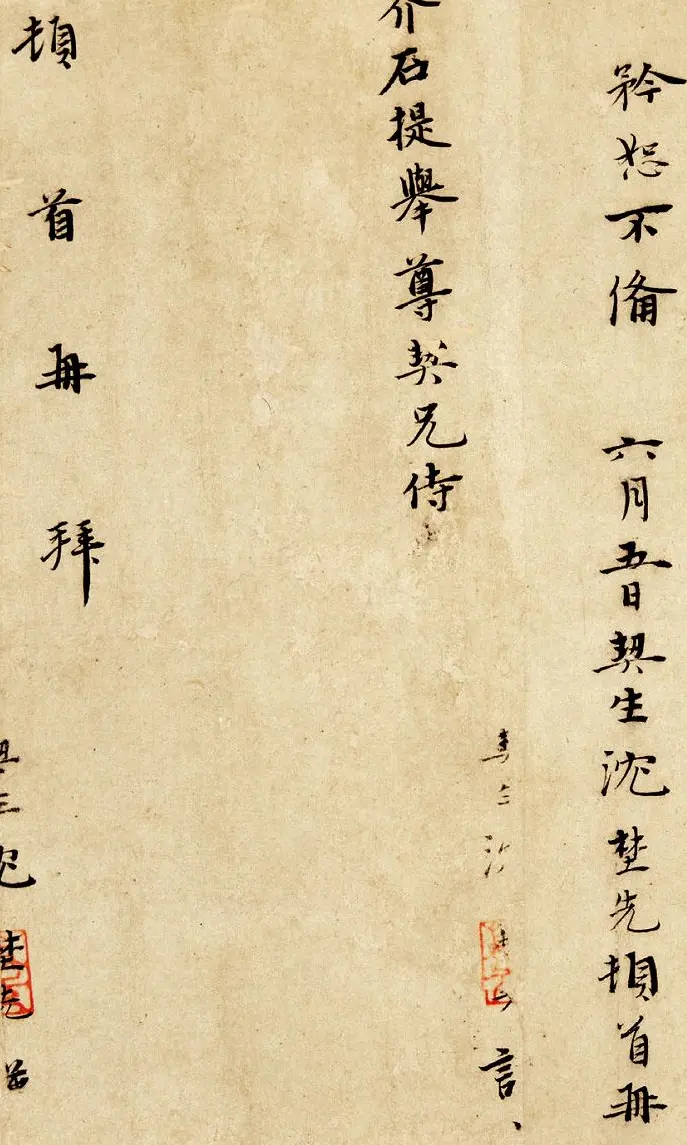 矜恕不備 六月五日契生沈埜先頓首再
言
介石提舉尊契兄侍
頓首再拜